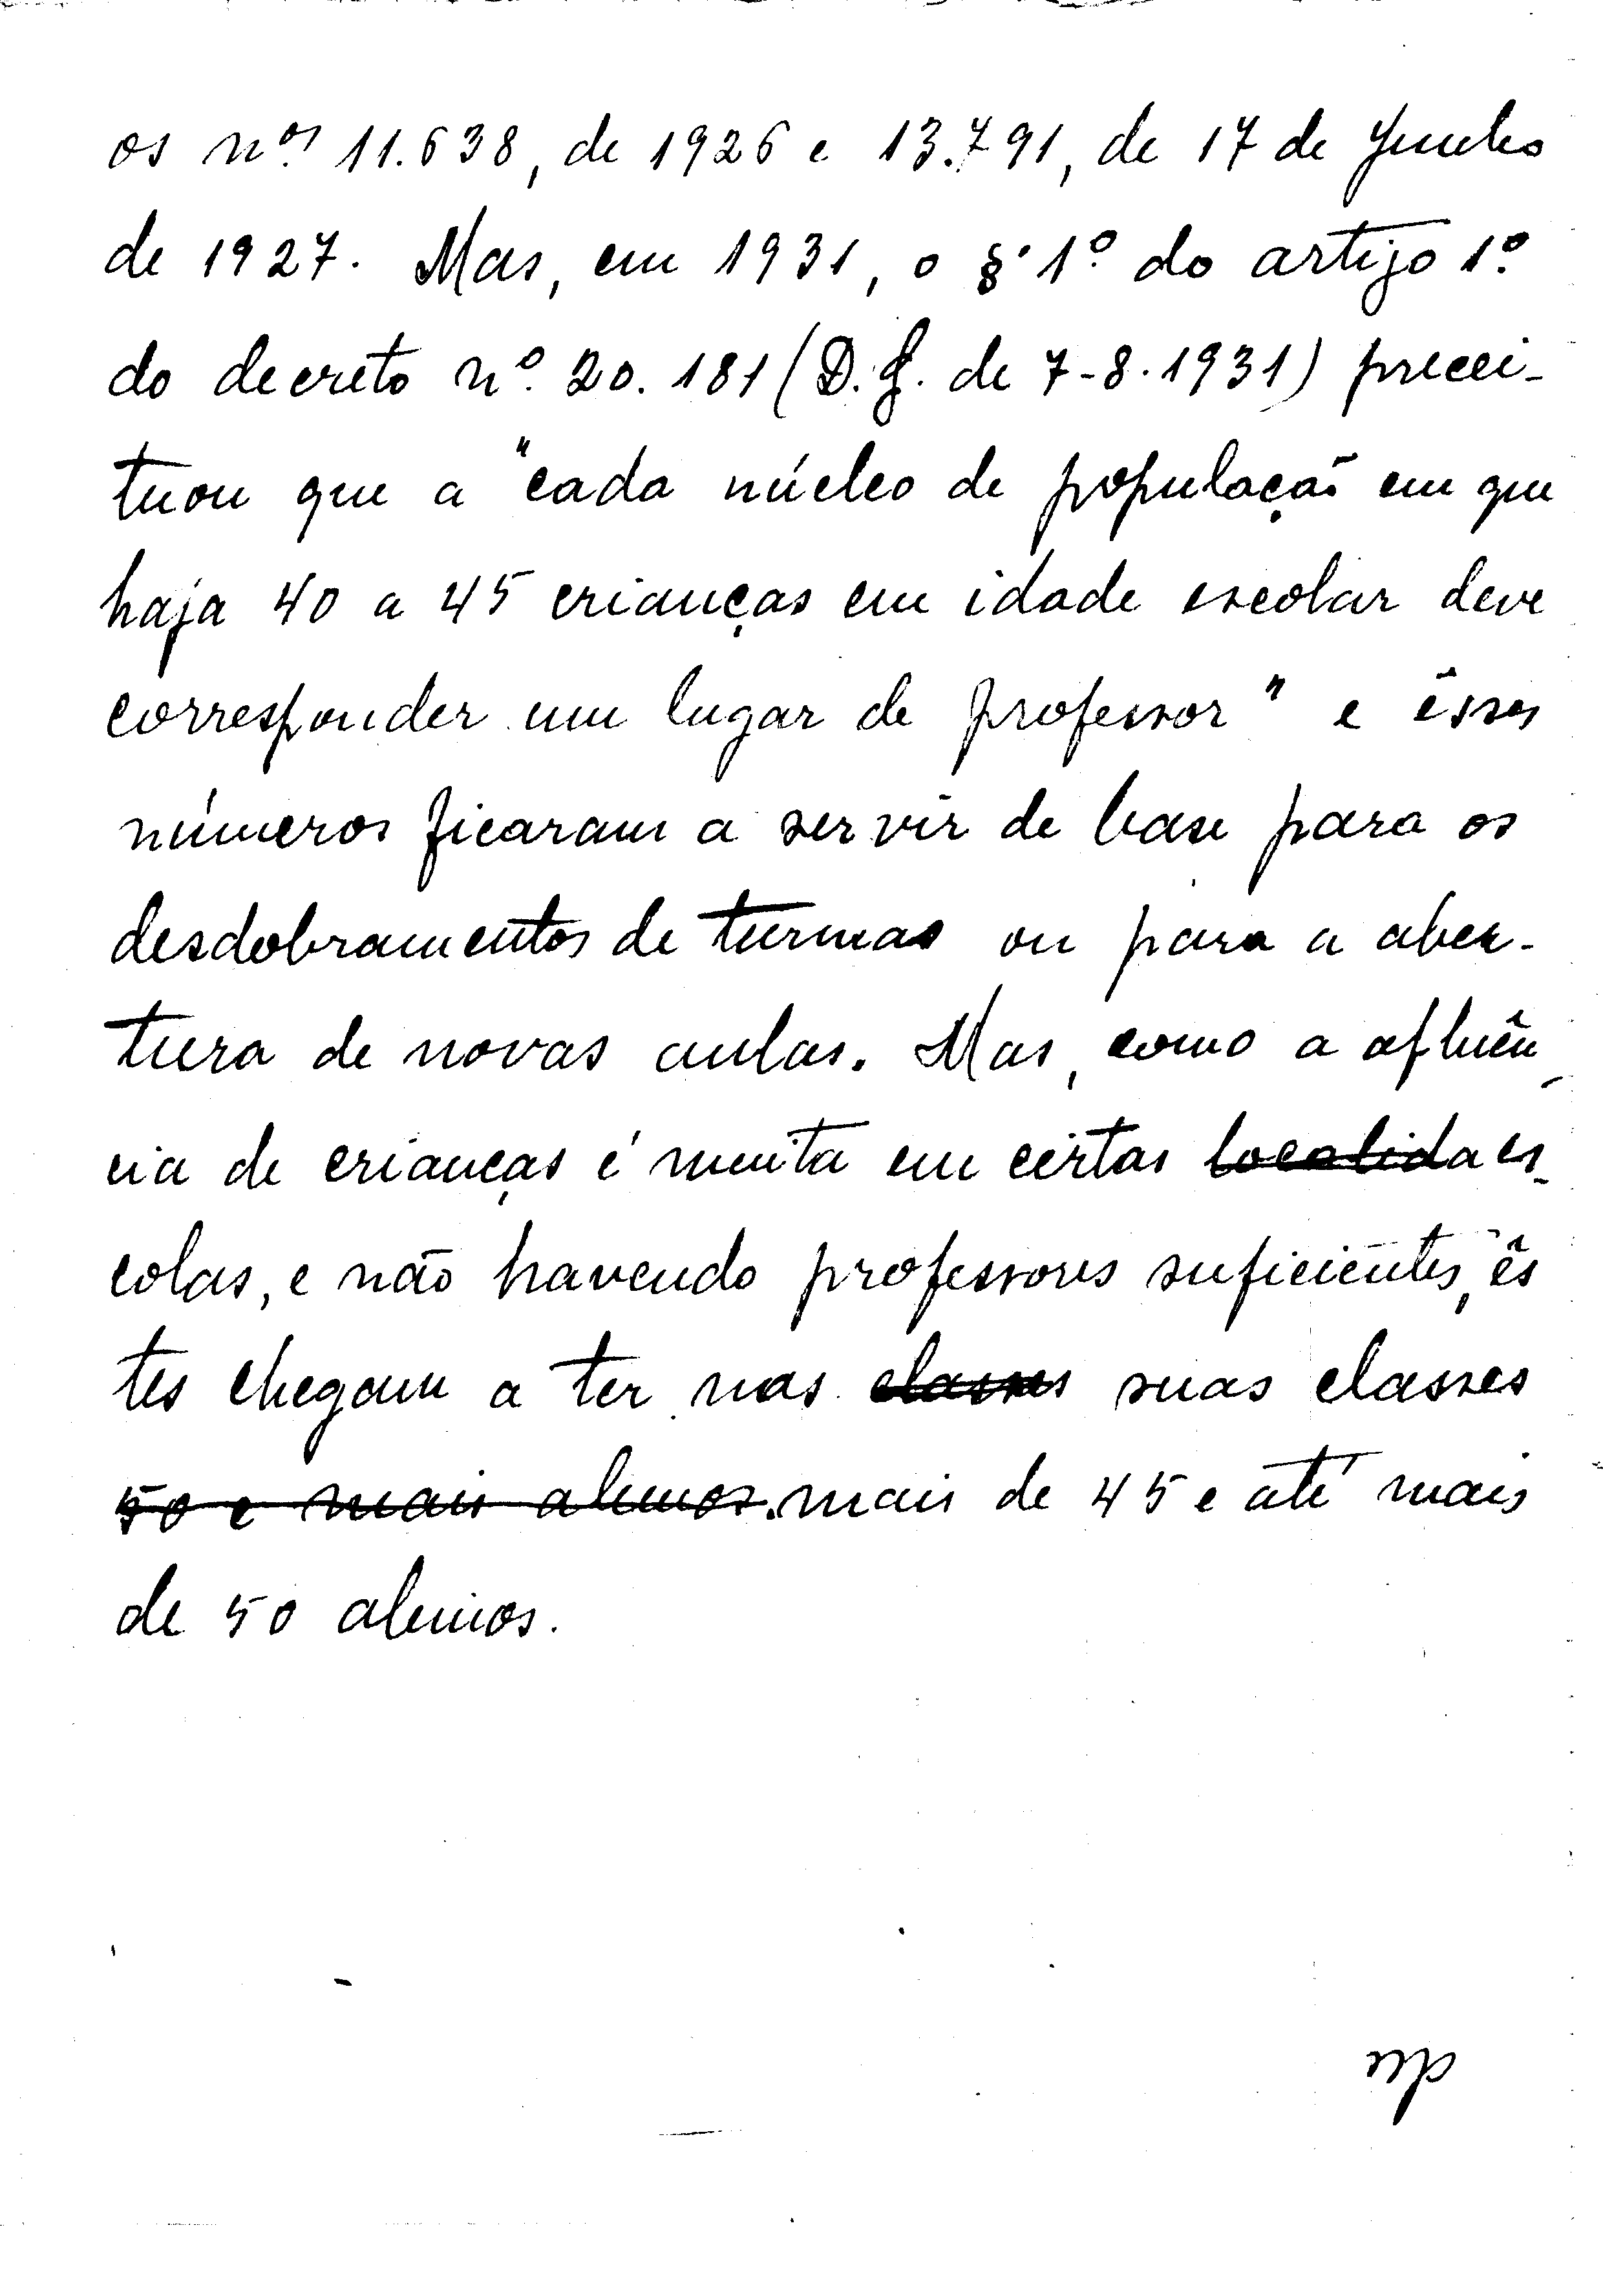 os nos. 11.638, de 1926 e 13.791, de 17 de Junho
de 1927. Mas, em 1931, o §º 1º do artigo 1º
do decreto nº. 20.181 (D. G. de 7-8-1931) precei-
tuou que a "cada núcleo de população em que
haja 40 a 45 crianças em idade escolar deve
corresponder um lugar de professor" e êsses
números ficaram a servir de base para os
desdobramentos de turmas ou para a aber-
tura de novas aulas. Mas, como a afluên-
cia de crianças é muita em certas localida es-
colas, e não havendo professores suficientes, ês
tes chegam a ter nas classes suas classes
50 e mais alunos. mais de 45 e até mais
de 50 alunos.